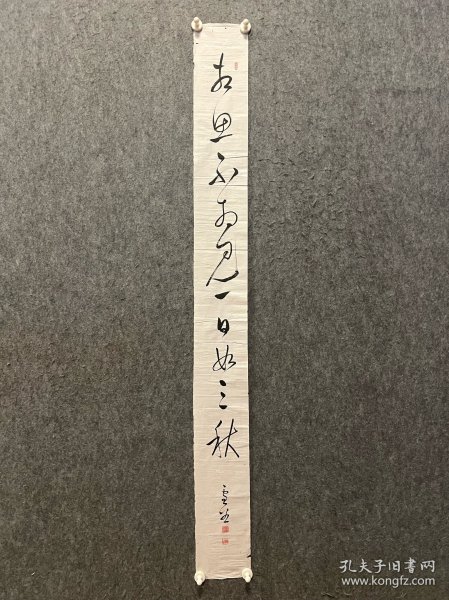 相思不相見一日如三秋
孔夫子旧书网
www.kongfz.com